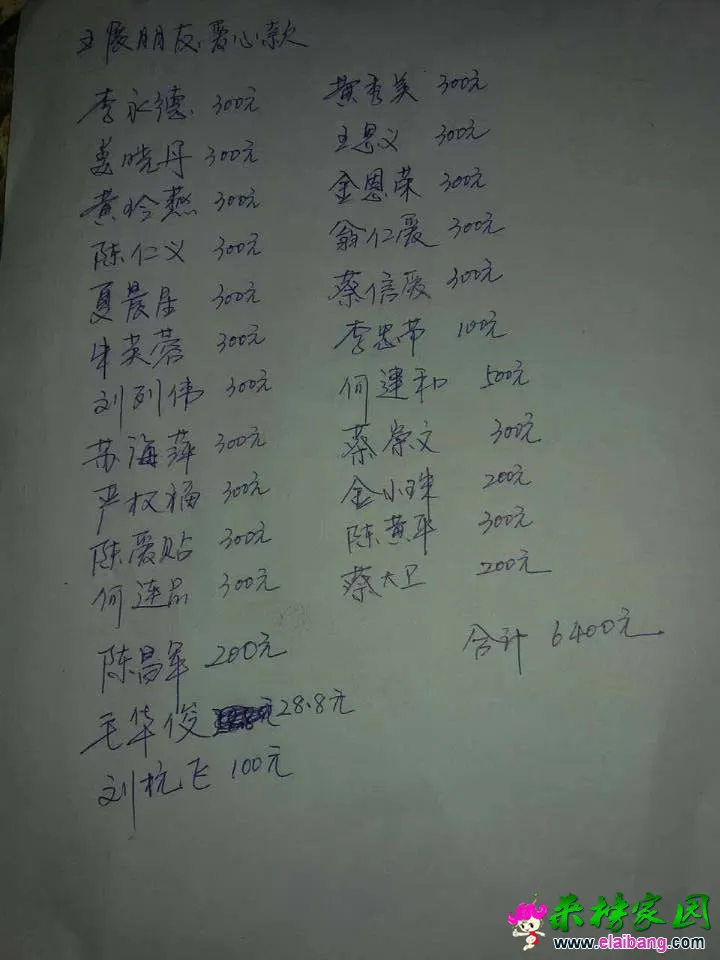 王展朋友爱心款
李永德 300元
姜晓丹 300元
黄玲燕 300元
陈仁义 300元
夏晨星 300元
朱英蓉 300元
刘列伟 300元
苏海萍 300元
严权福 300元
陈爱贴 300元
何连品 300元
陈昌军 200元
毛华俊 28.8元
刘杭飞 100元
黄秀美 300元
王思义 300元
金恩荣 300元
翁仁爱 300元
蔡信爱 300元
李忠带 100元
何建和 500元
蔡崇文 300元
金小珠 200元
陈黄平 300元
蔡大卫 200元
合计 6400元
来榜家园
www.elaibang.com